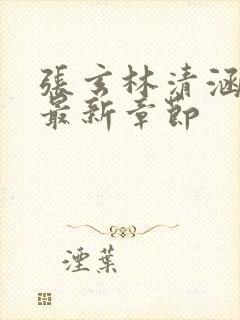 張玄林清涵
最新章節
湮葉